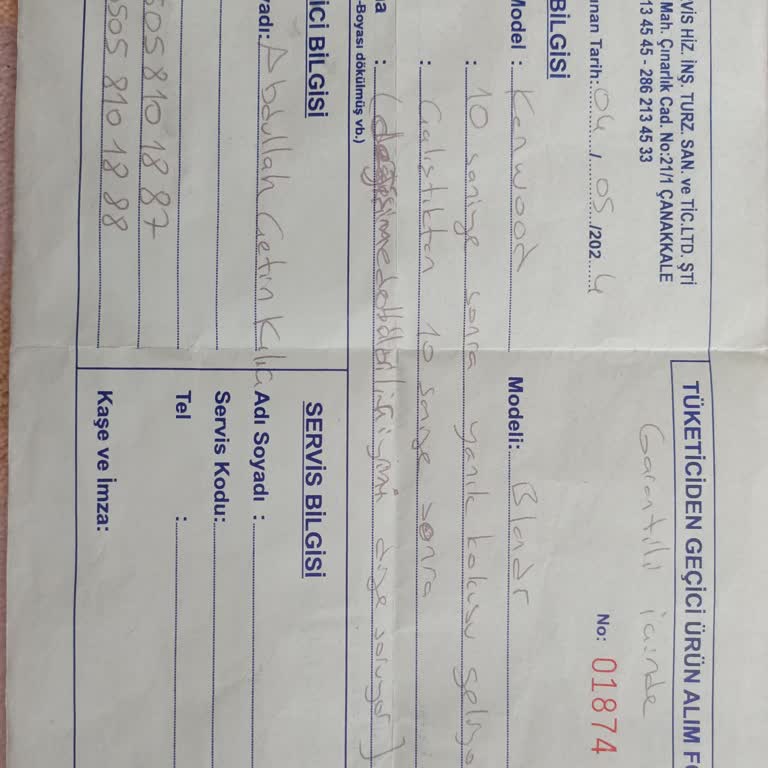 VİS HİZ. İNŞ. TURZ. SAN. ve TİC.LTD. ŞTİ
Mah. Çınarlık Cad. No:21/1 ÇANAKKALE
13 45 45 - 286 213 45 33
TÜKETİCİDEN GEÇİCİ ÜRÜN ALIM FO
Garantili içinde
No: 01874
nan Tarih: 04 / 05 /202 4
BİLGİSİ
Model : Kenwood Modeli: Blendr
: 10 saniye sonra yanık kokusu geliyo
: Çalıştıktan 10 saniye sonra
a : ( diye soruyor )
-Boyası dökülmüş vb.)
İCİ BİLGİSİ
yadı: Abdullah Çetin Kılıç
505 810 18 87
505 810 18 88
SERVİS BİLGİSİ
Adı Soyadı :
Servis Kodu:
Tel :
Kaşe ve İmza: